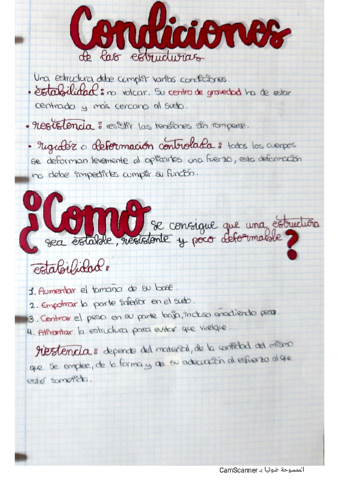 Condiciones
de las estructuras
Una estructura debe cumplir varias condiciones
· estabilidad: no volcar. Su centro de gravedad ha de estar
centrado y más cercano al suelo.
· resistencia: resistir las tensiones sin romperse.
· rigidez o deformación controlada: todos los cuerpos
se deforman levemente al aplicarles una fuerza, esta deformación
no debe impedirles cumplir su función.
¿Como se consigue que una estructura
sea estable, resistente y poco deformable?
estabilidad:
1. Aumentar el tamaño de su base.
2. Empotrar la parte inferior en el suelo.
3. Centrar el peso en su parte baja, incluso añadiendo peso
4. Atirantar la estructura para evitar que vuelque.
restencia: depende del material, de la cantidad del mismo
que se emplee, de la forma y de su adecuación al esfuerzo al que
esté sometida.
الممسوحة ضوئيا بـ CamScanner